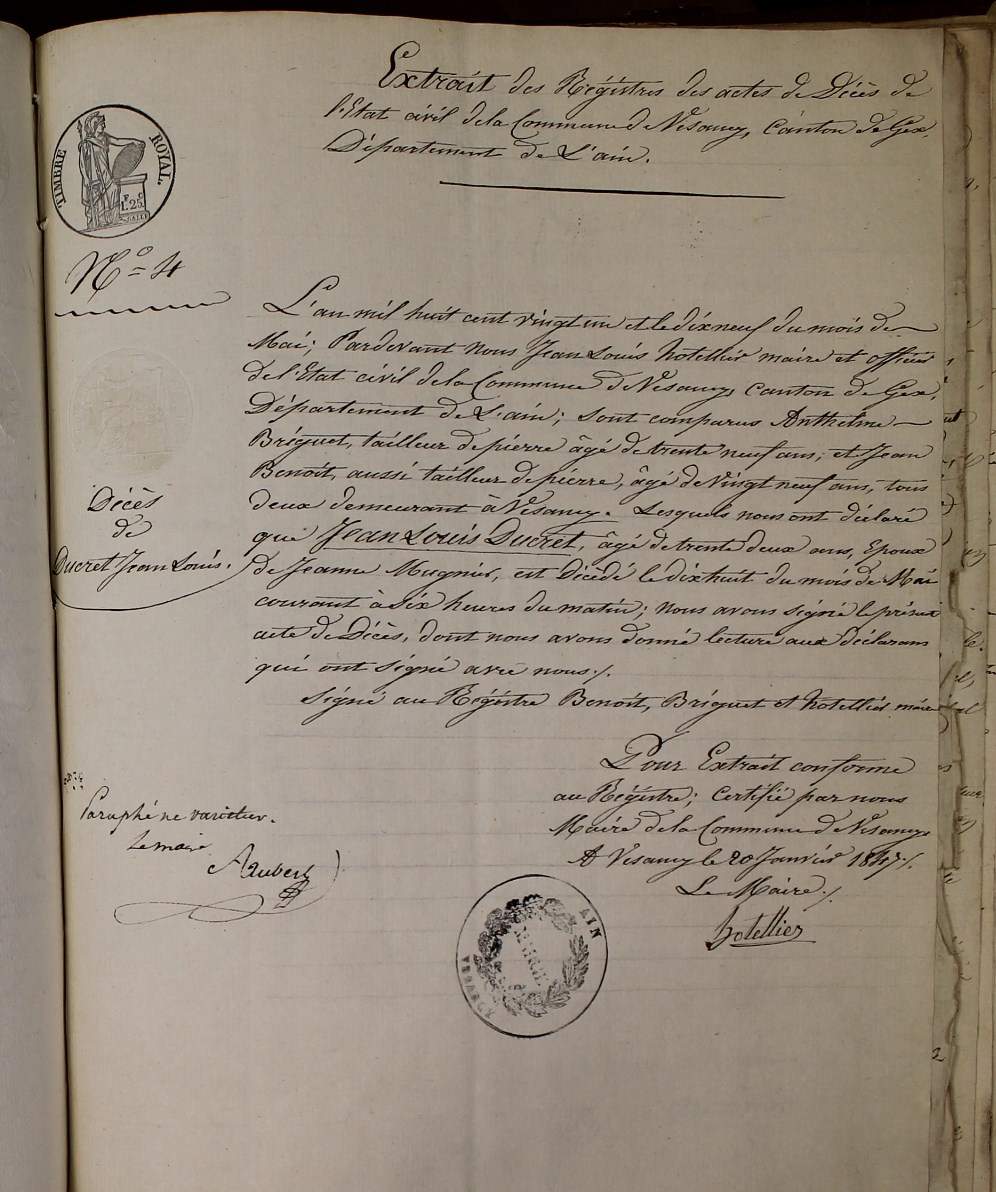 Extrait des Régistres des actes de Décès de
l'Etat civil de la Commune de Vesancy, Canton de Gex,
Département de L'ain.
TIMBRE ROYAL.
1.25
N.º 4
L'an mil huit cent vingt un et le dix neuf du mois de
Mai; Pardevant nous Jean Louis hotellier maire et officier
de l'Etat civil de la Commune de Vesancy, Canton de Gex,
Département de L'ain; sont comparus Anthelme
Briguet, tailleur de pierre âgé de trente neuf ans; et Jean
Benoit, aussi tailleur de pierre, âgé de vingt neuf ans, tous
deux demeurant à Vesancy. Lesquels nous ont déclaré
que Jean Louis Ducret, âgé de trente deux ans, Epoux
de Jeanne Mugnier, est Décédé le dix huit du mois de Mai
courant à six heures du matin; nous avons signé le présent
acte de Décès, dont nous avons donné lecture aux déclarans
qui ont signé avec nous /.
Signé au Régistre Benoit, Briguet et hotellier maire
Décès
de
Ducret Jean Louis.
Pour Extrait conforme
au Régistre; Certifié par nous
Maire de la Commune de Vesancy
A Vesancy le 20 Janvier 1847 /.
Le Maire /.
hotellier
Paraphé ne varietur.
Le maire
Aubert
AIN
MAIRIE
VESANCY